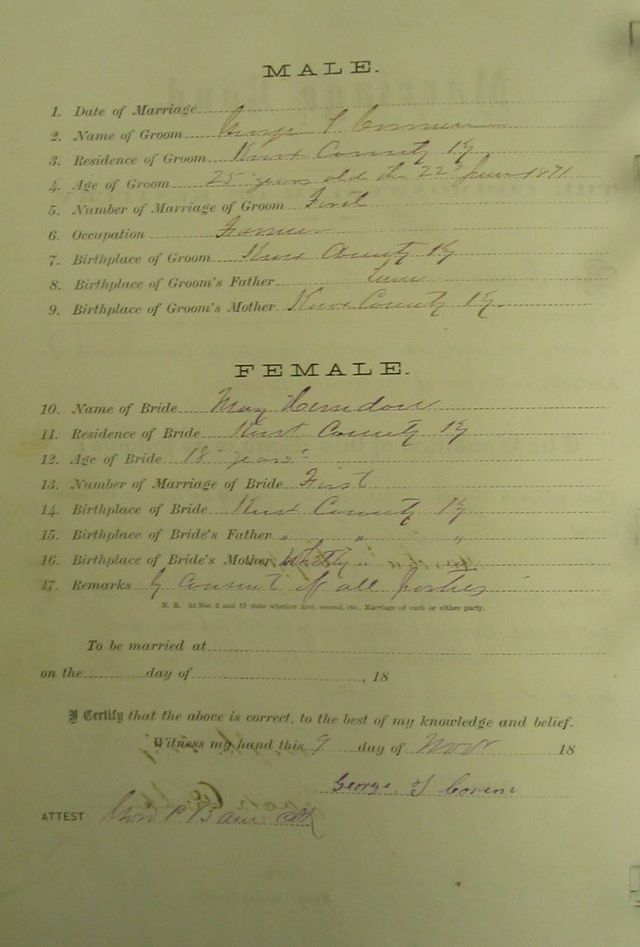 MALE.
1. Date of Marriage
2. Name of Groom George T
3. Residence of Groom Knox County Ky
4. Age of Groom 25 years old the 22 June 1871
5. Number of Marriage of Groom First
6. Occupation Farmer
7. Birthplace of Groom Knox County Ky
8. Birthplace of Groom's Father
9. Birthplace of Groom's Mother Knox County Ky.
FEMALE.
10. Name of Bride May Herndon
11. Residence of Bride Knox County Ky
12. Age of Bride 18 years
13. Number of Marriage of Bride First
14. Birthplace of Bride Knox County Ky
15. Birthplace of Bride's Father " " "
16. Birthplace of Bride's Mother
17. Remarks By consent of all parties
N. B. At Nos. 5 and 13 state whether first, second, etc., Marriage of each or either party.
To be married at
on the day of , 18
I Certify that the above is correct, to the best of my knowledge and belief.
Witness my hand this 9 day of Novr 18
George T
ATTEST